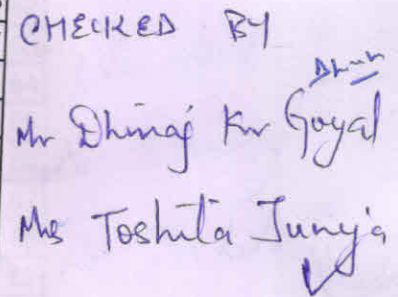 CHECKED BY
Mr Dhiraj Kr Goyal
Ms Toshita Juneja